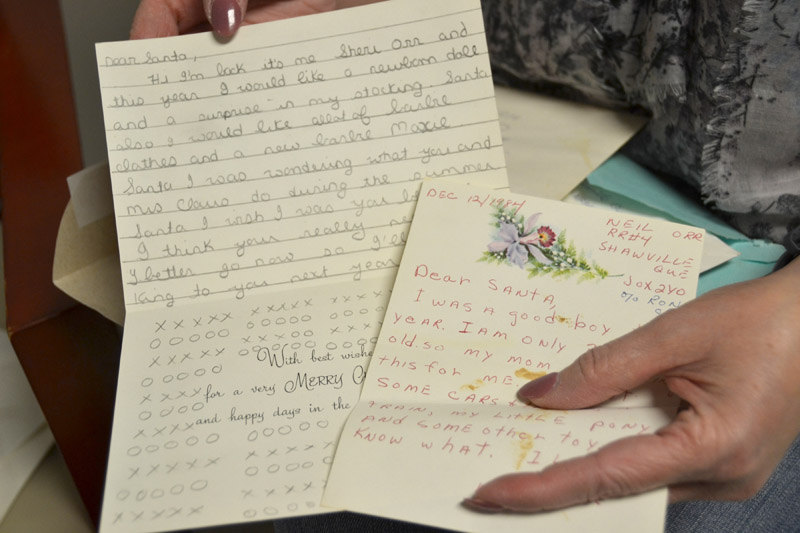 Dear Santa,
Hi I'm back it's me Sheri Orr and
this year I would like a newborn doll
and a surprise in my stocking. Santa
also I would like allot of barbie
clothes and a new barbie Maxie
Santa I was wondering what you and
Mrs Claus do during the summer
Santa I wish I was you
I think your really
I better go now so I'll
to you next year
XXXXX XXXXX XXXXX
OOOOO OOOOO OOOO
XXXXX XXXXX
OOOOO OOOOO
With best wishe
for a very MERRY C
and happy days in the
XXXXX
OOOOO OOOOO
XXXXX XXXXX
OOOOO OOOOO
XXXXX XXXXX
DEC 12/1984
NEIL ORR
RR#4
SHAWVILLE
QUE
JOX2YO
c/o RON
Dear SANTA,
I WAS A GOOD BOY
YEAR. I AM ONLY
OLD. SO MY MOM
THIS FOR ME.
SOME CARS
TRAIN, MY LITTLE PONY
AND SOME OTHER TOY
KNOW WHAT. I